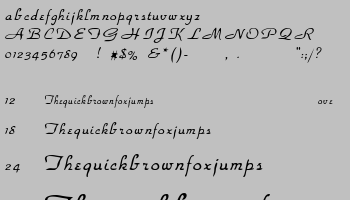 abcdefghijklmnopqrstuvwxyz
ABCDEFGHIJKLMNOPQR
0123456789 ! #$% &*()- , . ":;/?
12 Thequickbrownfoxjumps ove
18 Thequickbrownfoxjumps
24 Thequickbrownfoxjumps